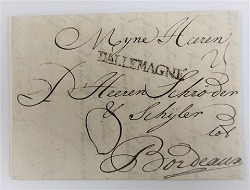 Myne Heeren
D'ALLEMAGNE
D Heeren Schröder
& Schÿler
tot
Bordeaux